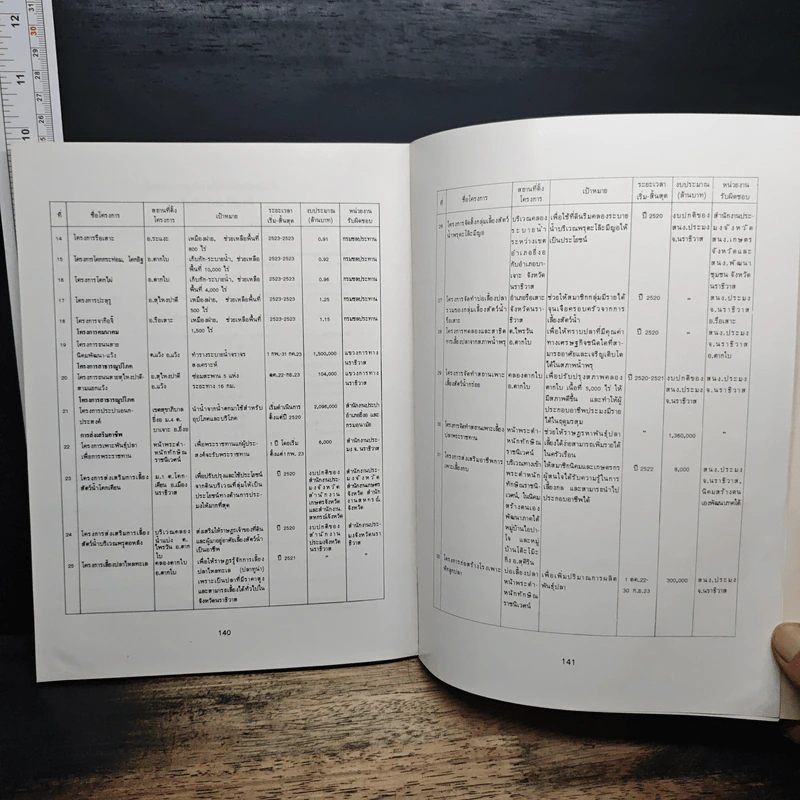 12
30
31
11
10
ที่ ชื่อโครงการ สถานที่ตั้งโครงการ เป้าหมาย ระยะเวลาเริ่ม-สิ้นสุด งบประมาณ (ล้านบาท) หน่วยงานรับผิดชอบ
14 โครงการรือเสาะ อ.ระแงะ เหมืองฝาย, ช่วยเหลือพื้นที่ 2523-2523 0.91 กรมชลประทาน
800 ไร่
15 โครงการโคกกระท่อม, โคกอิฐ อ.ตากใบ เก็บกัก-ระบายน้ำ, ช่วยเหลือ 2523-2523 0.92 กรมชลประทาน
พื้นที่ 10,000 ไร่
16 โครงการโคกไผ่ อ.ตากใบ เก็บกัก-ระบายน้ำ, ช่วยเหลือ 2523-2523 0.96 กรมชลประทาน
พื้นที่ 4,000 ไร่
17 โครงการปะลุรู อ.สุไหงปาดี เหมืองฝาย, ช่วยเหลือพื้นที่ 2523-2523 1.25 กรมชลประทาน
500 ไร่
18 อ.รือเสาะ เหมืองฝาย, ช่วยเหลือพื้นที่ 2523-2523 1.15 กรมชลประทาน
โครงการคมนาคม 1,500 ไร่
19 โครงการถนนสาย
นิคมพัฒนา-แว้ง ต.แว้ง อ.แว้ง ทำรางระบายน้ำจราจร 1 กพ.-31 กค.23 1,500,000 แขวงการทาง
โครงการสาธารณูปโภค สงเคราะห์ นราธิวาส
20 โครงการถนนสายสุไหงปาดี- อ.สุไหงปาดี ซ่อมสะพาน 5 แห่ง ตค.22-กย.23 104,000 แขวงการทาง
สามแยกแว้ง อ.แว้ง ระยะทาง 16 กม. นราธิวาส
โครงการสาธารณูปโภค
21 โครงการประปาเอนก- เขตสุขาภิบาล นำน้ำจากน้ำตกมาใช้สำหรับ เริ่มดำเนินการ 2,096,000 สำนักงานประปา
ประสงค์ ยี่งอ ม.4 ต. อุปโภคและบริโภค ตั้งแต่ปี 2520 อำเภอยี่งอ และ
บาเจาะ อ.ยี่งอ กรมอนามัย
การส่งเสริมอาชีพ
22 โครงการเพาะพันธุ์ปลา หน้าพระตำ- เพื่อพระราชทานแก่ผู้ประ- 1 ปี โดยเริ่ม 6,000 สำนักงานประมง-
เพื่อการพระราชทาน หนักทักษิณ สงค์จะรับพระราชทาน ตั้งแต่ กพ. 23 จ. นราธิวาส
ราชนิเวศน์
23 โครงการส่งเสริมการเลี้ยง ม. 1 ต.โคก- เพื่อปรับปรุงและใช้ประโยชน์ ปี 2520 งบปกติของ สำนักงานประ-
สัตว์น้ำโคกเคียน เคียน อ.เมือง จากดินบริเวณที่ลุ่มให้เป็น
นราธิวาส ประโยชน์ทางด้านการประ-
มงให้มากที่สุด
24 โครงการส่งเสริมการเลี้ยง บริเวณคลอง ส่งเสริมให้ราษฎรเจ้าของที่ดิน ปี 2520 งบปกติของ สำนักงานประ-
สัตว์น้ำบริเวณพรุตอหลัง น้ำแบ่ง ต. และผู้มาอยู่อาศัยเลี้ยงสัตว์น้ำ สำนักงาน มงจังหวัดนรา-
ไพรวัน อ.ตาก เป็นอาชีพ ประมงจังหวัด ธิวาส
ใบ นราธิวาส
25 โครงการเลี้ยงปลาไหลทะเล คลองตากใบ เพื่อให้ราษฎรรู้จักการเลี้ยง ปี 2521 " "
อ.ตากใบ ปลาไหลทะเล (ปลาตูหนา)
เพราะเป็นปลาที่มีราคาสูง
และสามารถเลี้ยงได้ทั่วไปใน
จังหวัดนราธิวาส
140
ที่ ชื่อโครงการ สถานที่ตั้งโครงการ เป้าหมาย ระยะเวลาเริ่ม-สิ้นสุด งบประมาณ (ล้านบาท) หน่วยงานรับผิดชอบ
โครงการจัดตั้งกลุ่มเลี้ยงสัตว์ บริเวณคลอง เพื่อใช้ที่ดินริมคลองระบาย ปี 2520 งบปกติของ สำนักงานประ-
ระบายน้ำ สนง.ประมง มงจังหวัด
ระหว่างเขต ให้เป็นประโยชน์ จ.นราธิวาส สนง.เกษตร
อำเภอยี่งอ จังหวัดและ
กับอำเภอบา- สนง.พัฒนา
เจาะ จังหวัด ชุมชน จังหวัด
นราธิวาส นราธิวาส
27 โครงการจัดทำบ่อเลี้ยงปลา อำเภอรือเสาะ ช่วยให้สมาชิกกลุ่มมีรายได้ ปี 2520 " สนง.ประมง
จังหวัดนรา- จุนเจือครอบครัวจากการ จ.นราธิวาส
รือเสาะ ธิวาส เลี้ยงสัตว์น้ำ อ.รือเสาะ
28 โครงการทดลองและสาธิต ต.ไพรวัน เพื่อให้ทราบปลาที่มีคุณค่า ปี 2520 " สนง.ประมง
การเลี้ยงปลาจากสภาพน้ำพรุ อ.ตากใบ ทางเศรษฐกิจชนิดใดที่สา- จ.นราธิวาส
มารถอาศัยและเจริญเติบโต อ.ตากใบ
ได้ในสภาพน้ำพรุ
29 คลองตากใบ เพื่อปรับปรุงสภาพคลอง ปี 2520-2521 งบปกติของ สนง.ประมง
เลี้ยงสัตว์น้ำกร่อย อ.ตากใบ ตากใบ เนื้อที่ 5,000 ไร่ ให้ สนง.ประมง จ.นราธิวาส
มีสภาพดีขึ้น และทำให้ผู้ จ.นราธิวาส
ประกอบอาชีพประมงมีราย
ได้ในฤดูมรสุม
30 โครงการจัดทำสถานเพาะเลี้ยง หน้าพระตำ- ช่วยให้ราษฎรหาพันธุ์ปลา " 1,360,000 "
ปลาพระราชทาน หนักทักษิณ เลี้ยงได้ง่ายสามารถเพิ่มรายได้
ราชนิเวศน์ ในครัวเรือน
31 โครงการส่งเสริมอาชีพการ เพื่อให้สมาชิกนิคมและเกษตรกร ปี 2522 9,000 สนง.ประมง
เพาะเลี้ยงกบ ผู้สนใจได้รับความรู้ในการ จ.นราธิวาส,
เลี้ยงกบ และสามารถนำไป นิคมสร้างตน
ประกอบอาชีพได้ เองพัฒนาภาคใต้
โครงการก่อสร้างโรงเพาะ บ่อเลี้ยงปลา เพื่อเพิ่มปริมาณการผลิต 1 ตค.22- 300,000 สนง.ประมง
ฟักลูกปลา หน้าพระตำ- พันธุ์ปลา 30 กย.23 จ.นราธิวาส
หนักทักษิณ
ราชนิเวศน์
141